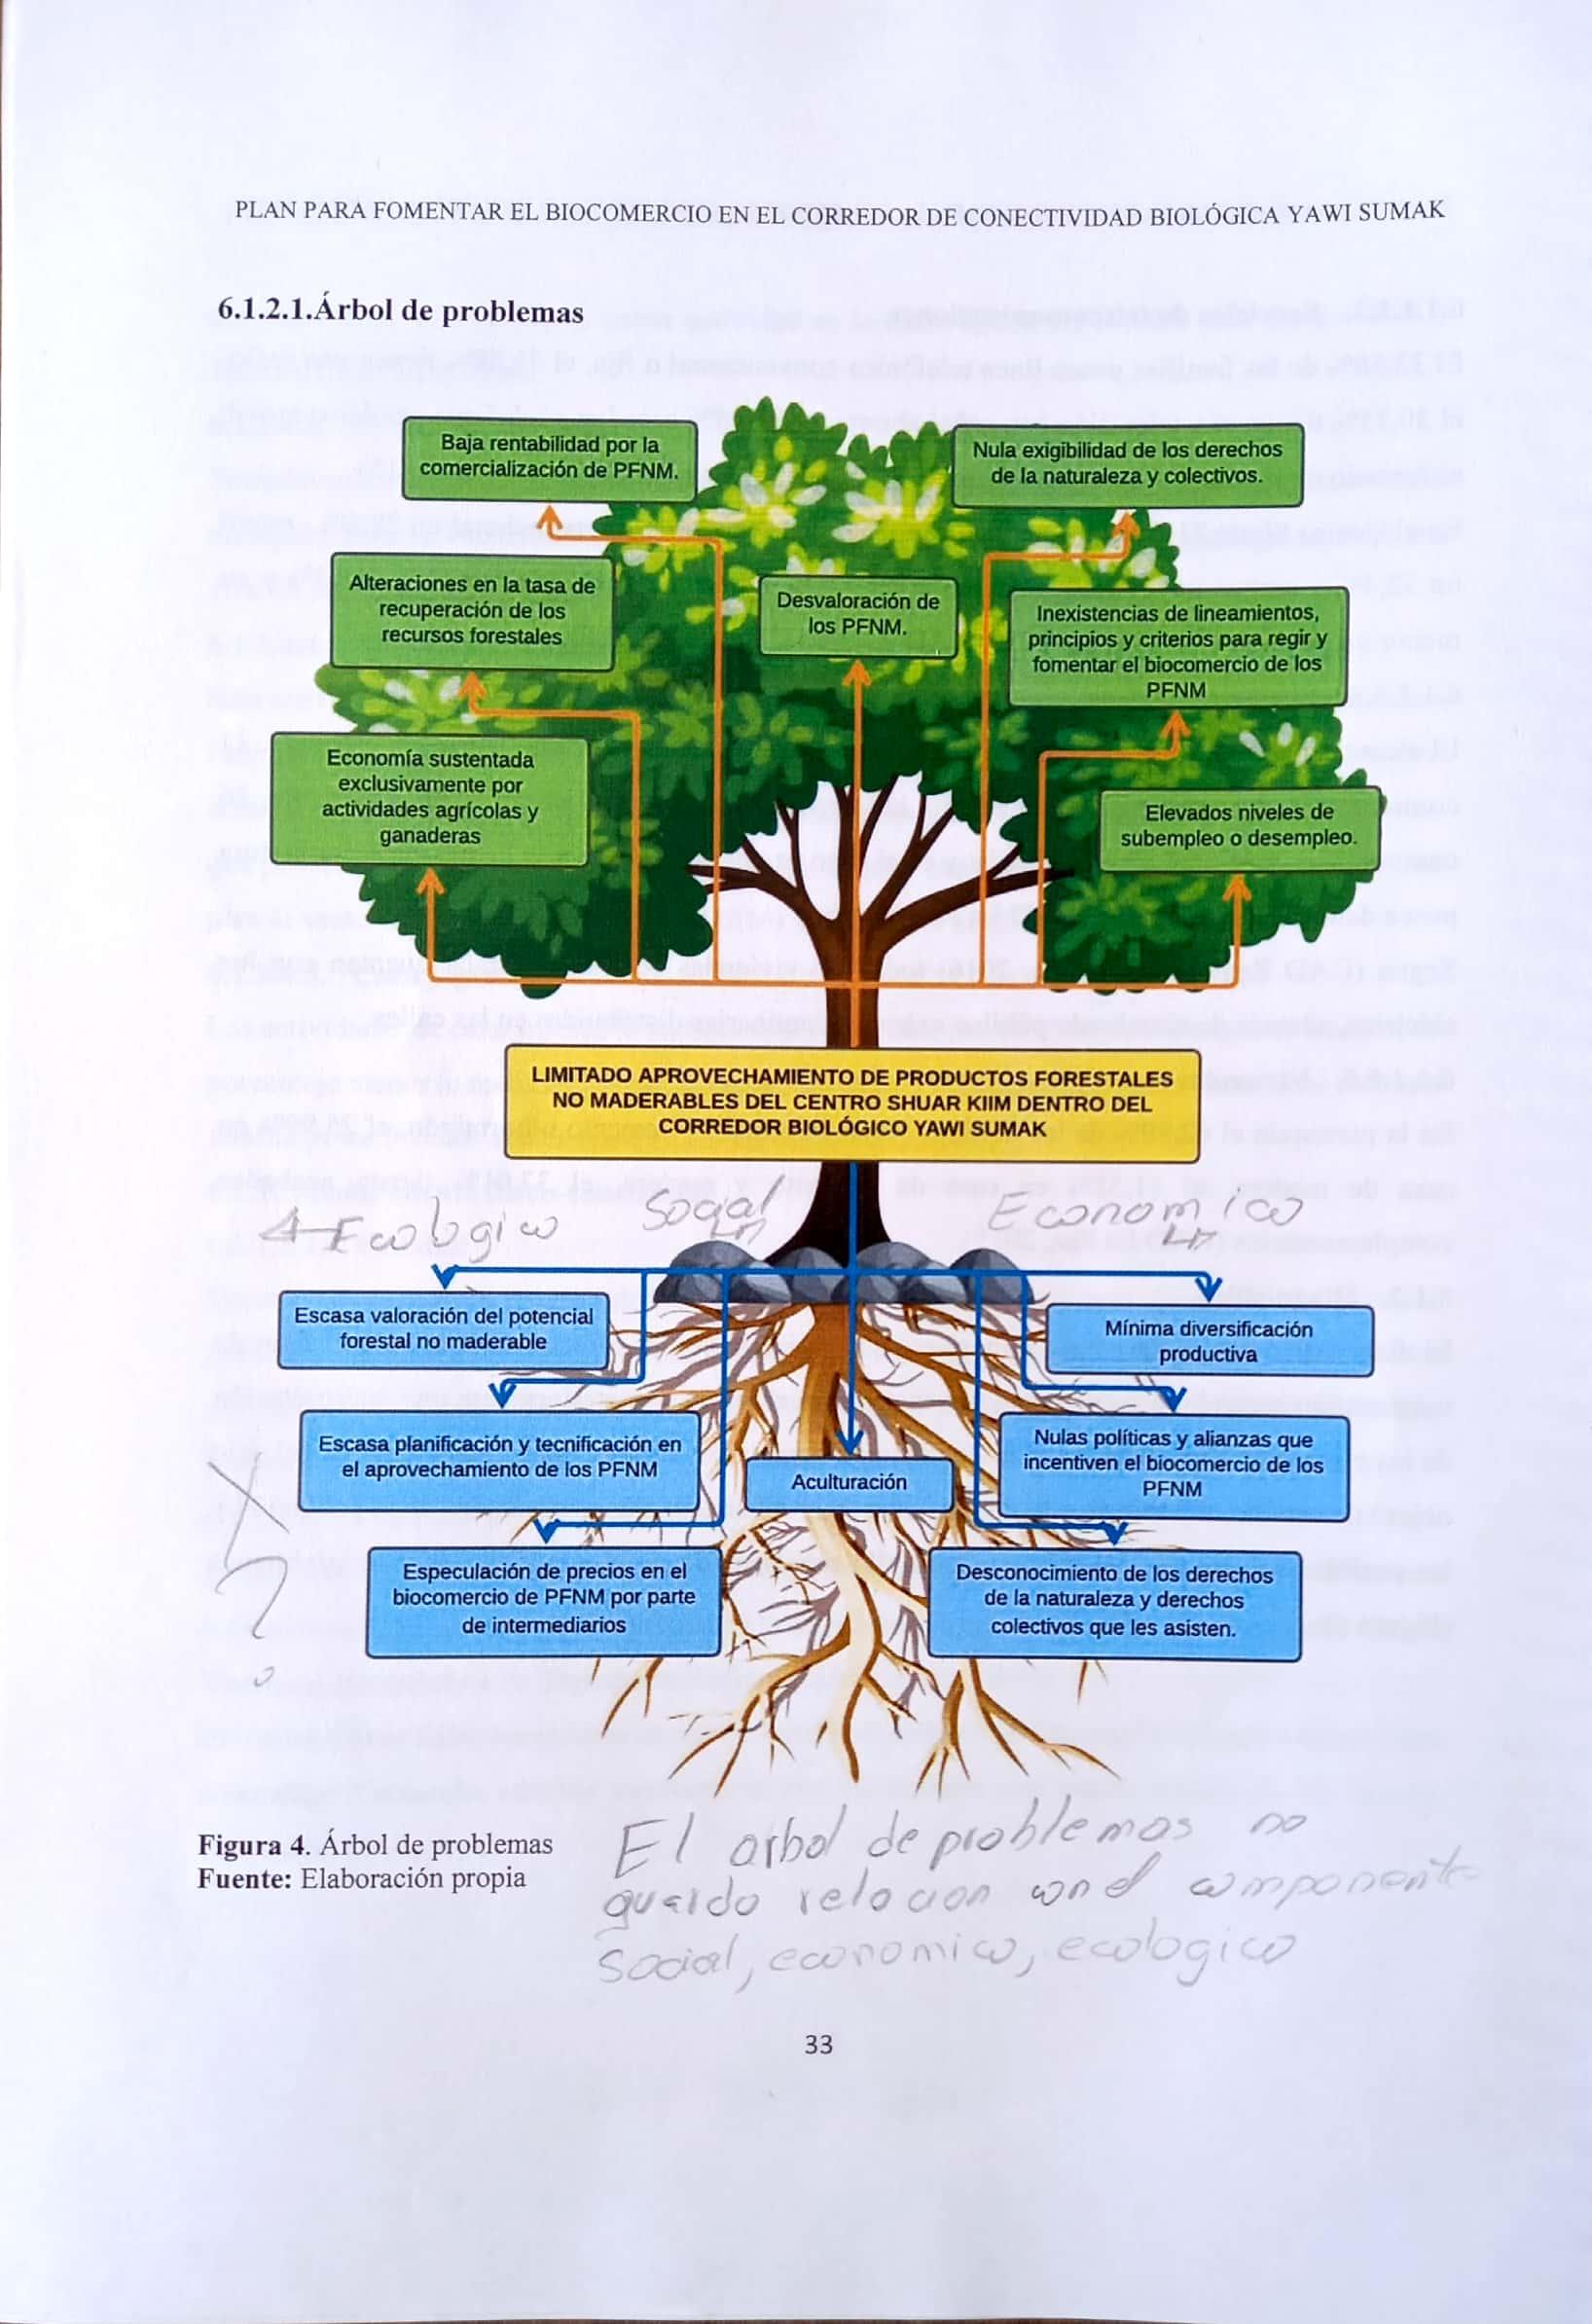 PLAN PARA FOMENTAR EL BIOCOMERCIO EN EL CORREDOR DE CONECTIVIDAD BIOLÓGICA YAWI SUMAK
6.1.2.1.Árbol de problemas
Baja rentabilidad por la
comercialización de PFNM.
Nula exigibilidad de los derechos
de la naturaleza y colectivos.
Alteraciones en la tasa de
recuperación de los
recursos forestales
Desvaloración de
los PFNM.
Inexistencias de lineamientos,
principios y criterios para regir y
fomentar el biocomercio de los
PFNM
Economía sustentada
exclusivamente por
actividades agrícolas y
ganaderas
Elevados niveles de
subempleo o desempleo.
LIMITADO APROVECHAMIENTO DE PRODUCTOS FORESTALES
NO MADERABLES DEL CENTRO SHUAR KIIM DENTRO DEL
CORREDOR BIOLÓGICO YAWI SUMAK
Ecologico Social Economico
Escasa valoración del potencial
forestal no maderable
Mínima diversificación
productiva
Escasa planificación y tecnificación en
el aprovechamiento de los PFNM
Aculturación
Nulas políticas y alianzas que
incentiven el biocomercio de los
PFNM
Especulación de precios en el
biocomercio de PFNM por parte
de intermediarios
Desconocimiento de los derechos
de la naturaleza y derechos
colectivos que les asisten.
Figura 4. Árbol de problemas
Fuente: Elaboración propia
El arbol de problemas no
guarda relacion con el componente
Social, economico, ecologico
33